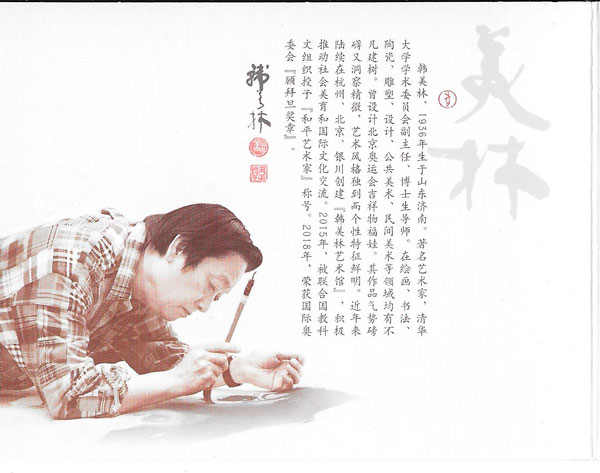 美林
韩美林，1936年生于山东济南。著名艺术家，清华
大学学术委员会副主任、博士生导师。在绘画、书法、
陶瓷、雕塑、设计、公共美术、民间美术等领域均有不
凡建树。曾设计北京奥运会吉祥物福娃。其作品气势磅
礴又洞察精微，艺术风格独到而个性特征鲜明。近年来
陆续在杭州、北京、银川创建『韩美林艺术馆』，积极
推动社会美育和国际文化交流。2015年，被联合国教科
文组织授予『和平艺术家』称号。2018年，荣获国际奥
委会『顾拜旦奖章』。
韩美林